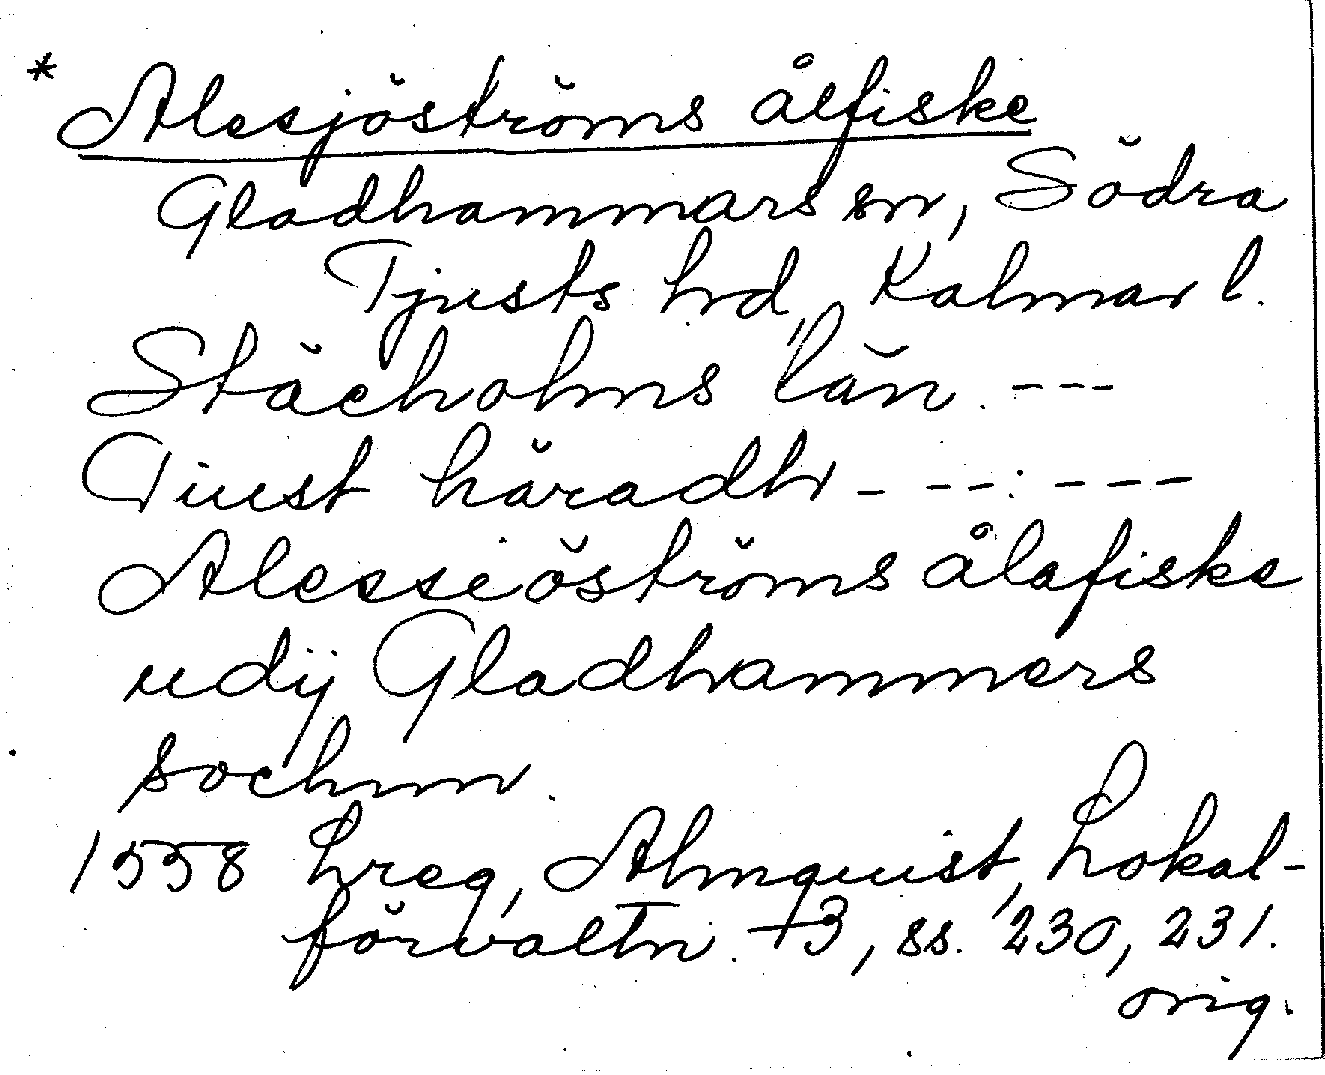 * Alesjöströms ålfiske
Gladhammars sn, Södra
Tjusts hd, Kalmar l.
Stächolms län. ---
Tiust häradh - --:---
Alessiöströms ålafiske
udij Gladhammers
sochnn.
1558 Lreg, Almquist, Lokal-
förvaltn. +3, ss. 230, 231.
orig.